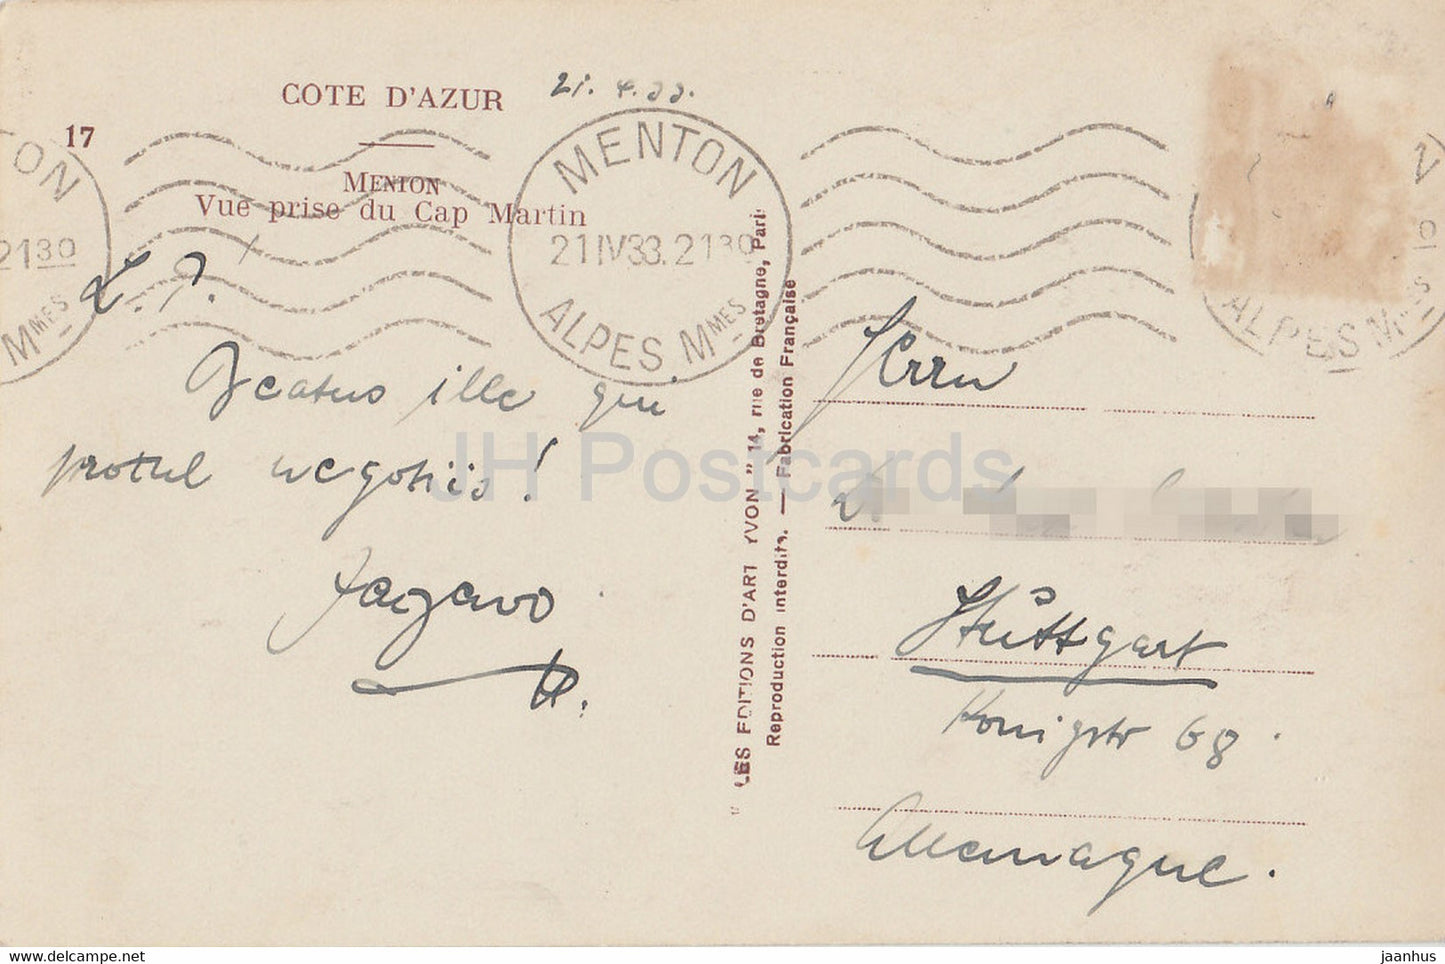 COTE D'AZUR
21. 4. 33.
17
MENTON
Vue prise du Cap Martin
MENTON
21 IV 33. 2130
ALPES MMES
ON
2130
MMES
N
ALPES MMES
L. P.
Beatus ille qui
procul negotiis!
Herrn
Stuttgart
Königstr 68.
Allemagne.
"LES EDITIONS D'ART YVON" 14, rue de Bretagne, Paris
Reproduction interdite. — Fabrication Française
JH Postcards
delcampe.net
jaanhus